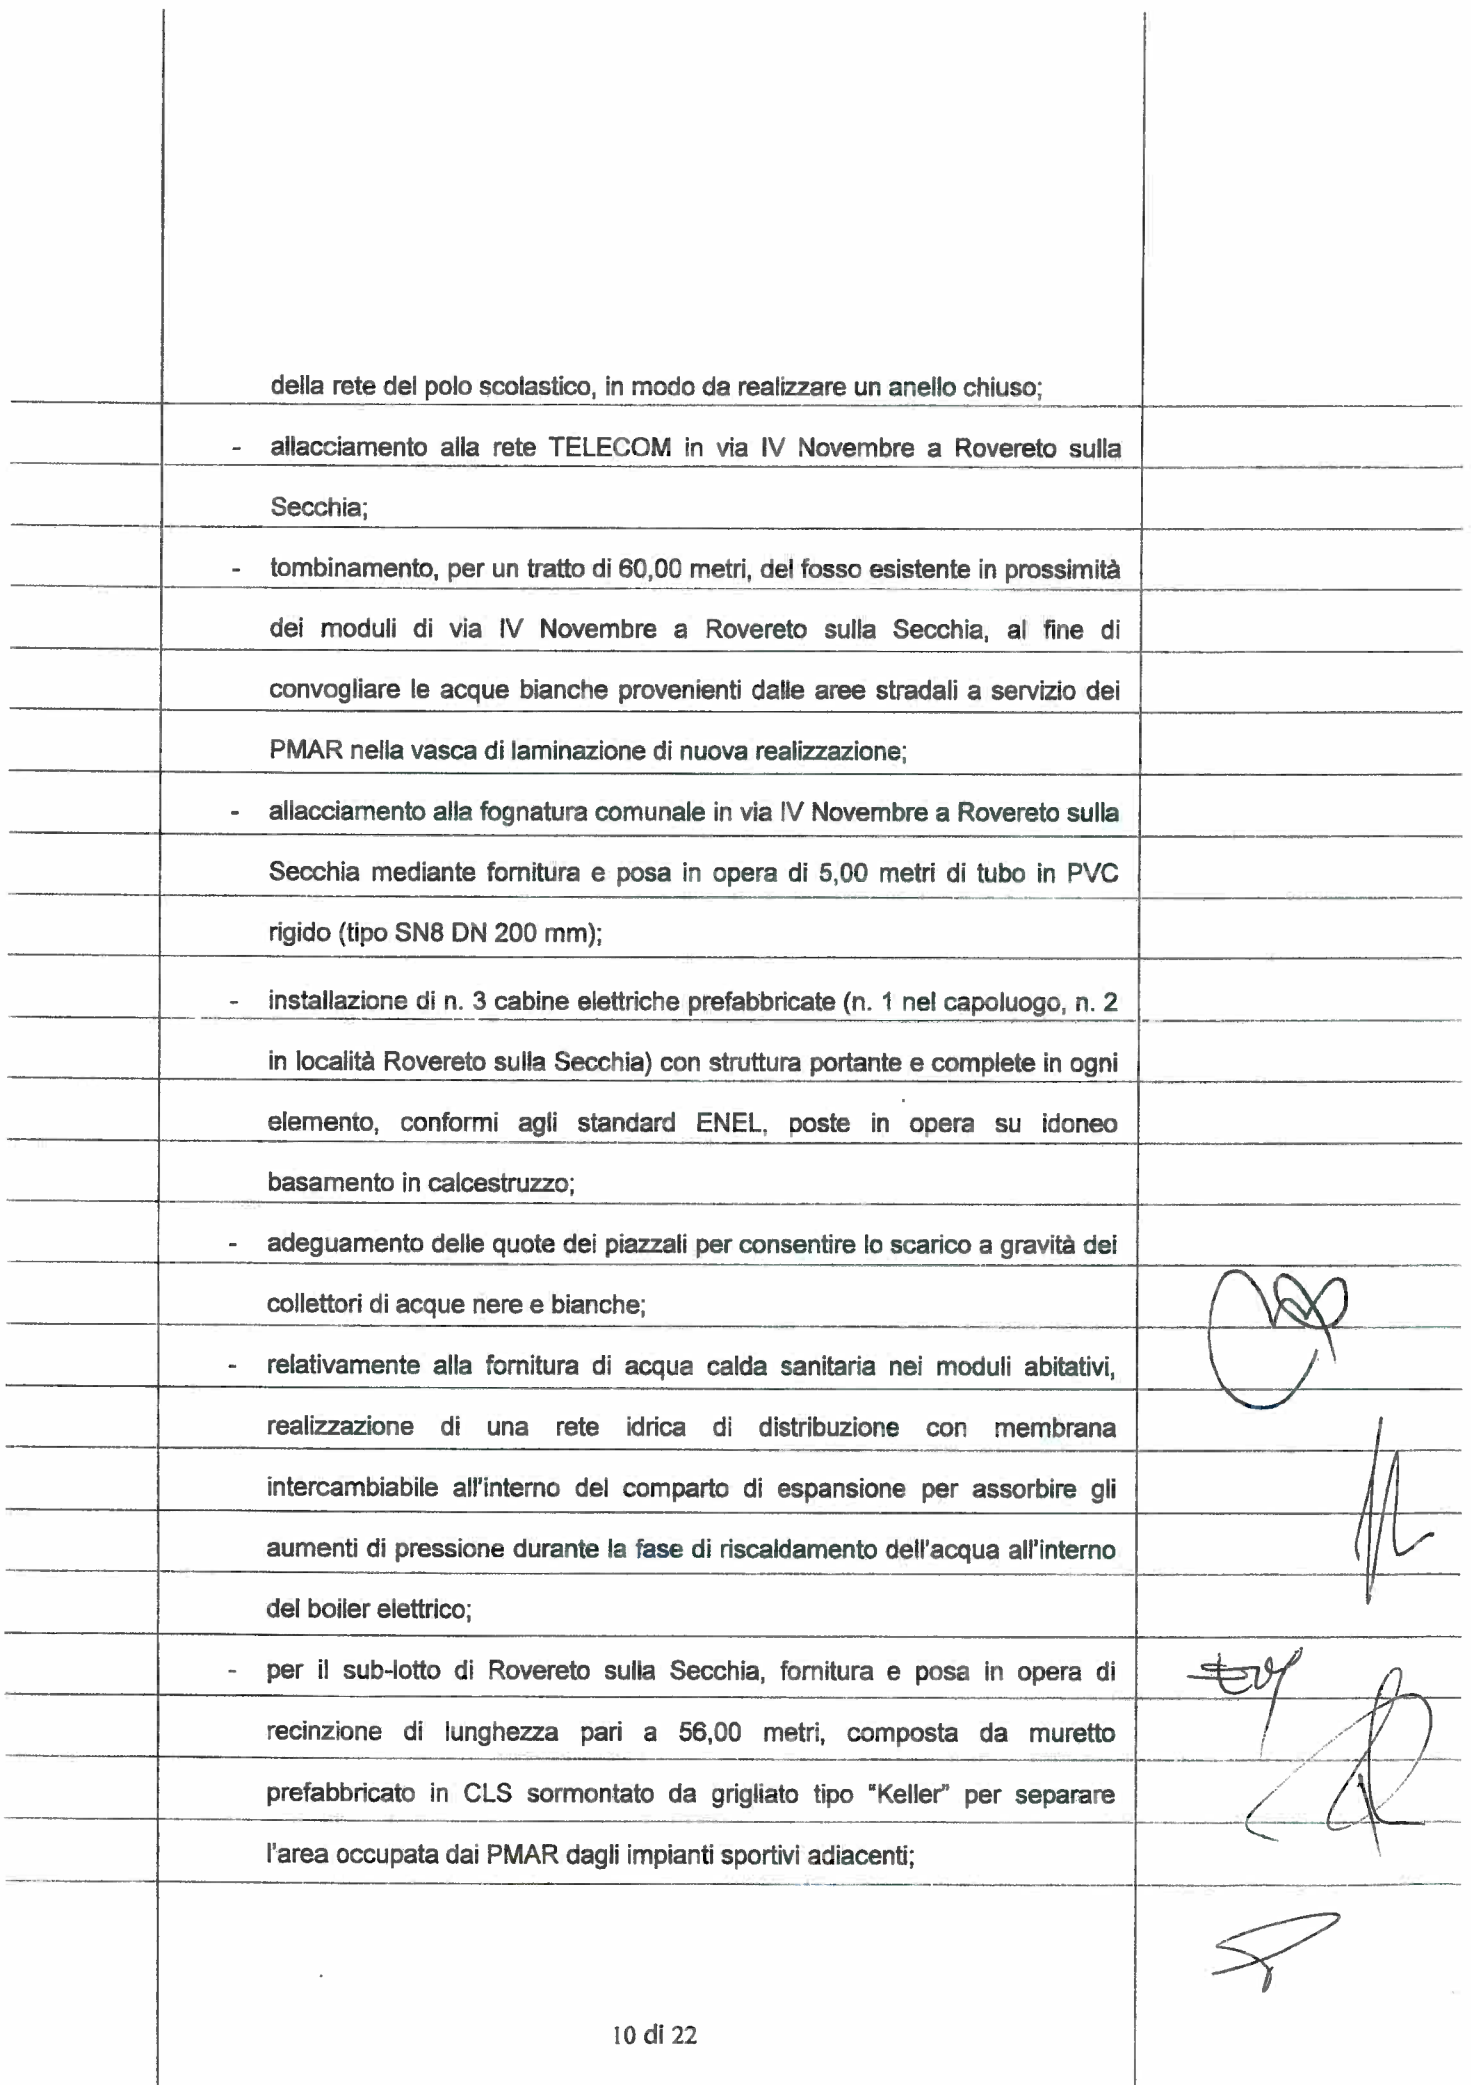 della rete del polo scolastico, in modo da realizzare un anello chiuso;
- allacciamento alla rete TELECOM in via IV Novembre a Rovereto sulla
Secchia;
- tombinamento, per un tratto di 60,00 metri, del fosso esistente in prossimità
dei moduli di via IV Novembre a Rovereto sulla Secchia, al fine di
convogliare le acque bianche provenienti dalle aree stradali a servizio dei
PMAR nella vasca di laminazione di nuova realizzazione;
- allacciamento alla fognatura comunale in via IV Novembre a Rovereto sulla
Secchia mediante fornitura e posa in opera di 5,00 metri di tubo in PVC
rigido (tipo SN8 DN 200 mm);
- installazione di n. 3 cabine elettriche prefabbricate (n. 1 nel capoluogo, n. 2
in località Rovereto sulla Secchia) con struttura portante e complete in ogni
elemento, conformi agli standard ENEL, poste in opera su idoneo
basamento in calcestruzzo;
- adeguamento delle quote dei piazzali per consentire lo scarico a gravità dei
collettori di acque nere e bianche;
- relativamente alla fornitura di acqua calda sanitaria nei moduli abitativi,
realizzazione di una rete idrica di distribuzione con membrana
intercambiabile all'interno del comparto di espansione per assorbire gli
aumenti di pressione durante la fase di riscaldamento dell'acqua all'interno
del boiler elettrico;
- per il sub-lotto di Rovereto sulla Secchia, fornitura e posa in opera di
recinzione di lunghezza pari a 56,00 metri, composta da muretto
prefabbricato in CLS sormontato da grigliato tipo "Keller" per separare
l'area occupata dai PMAR dagli impianti sportivi adiacenti;
10 di 22